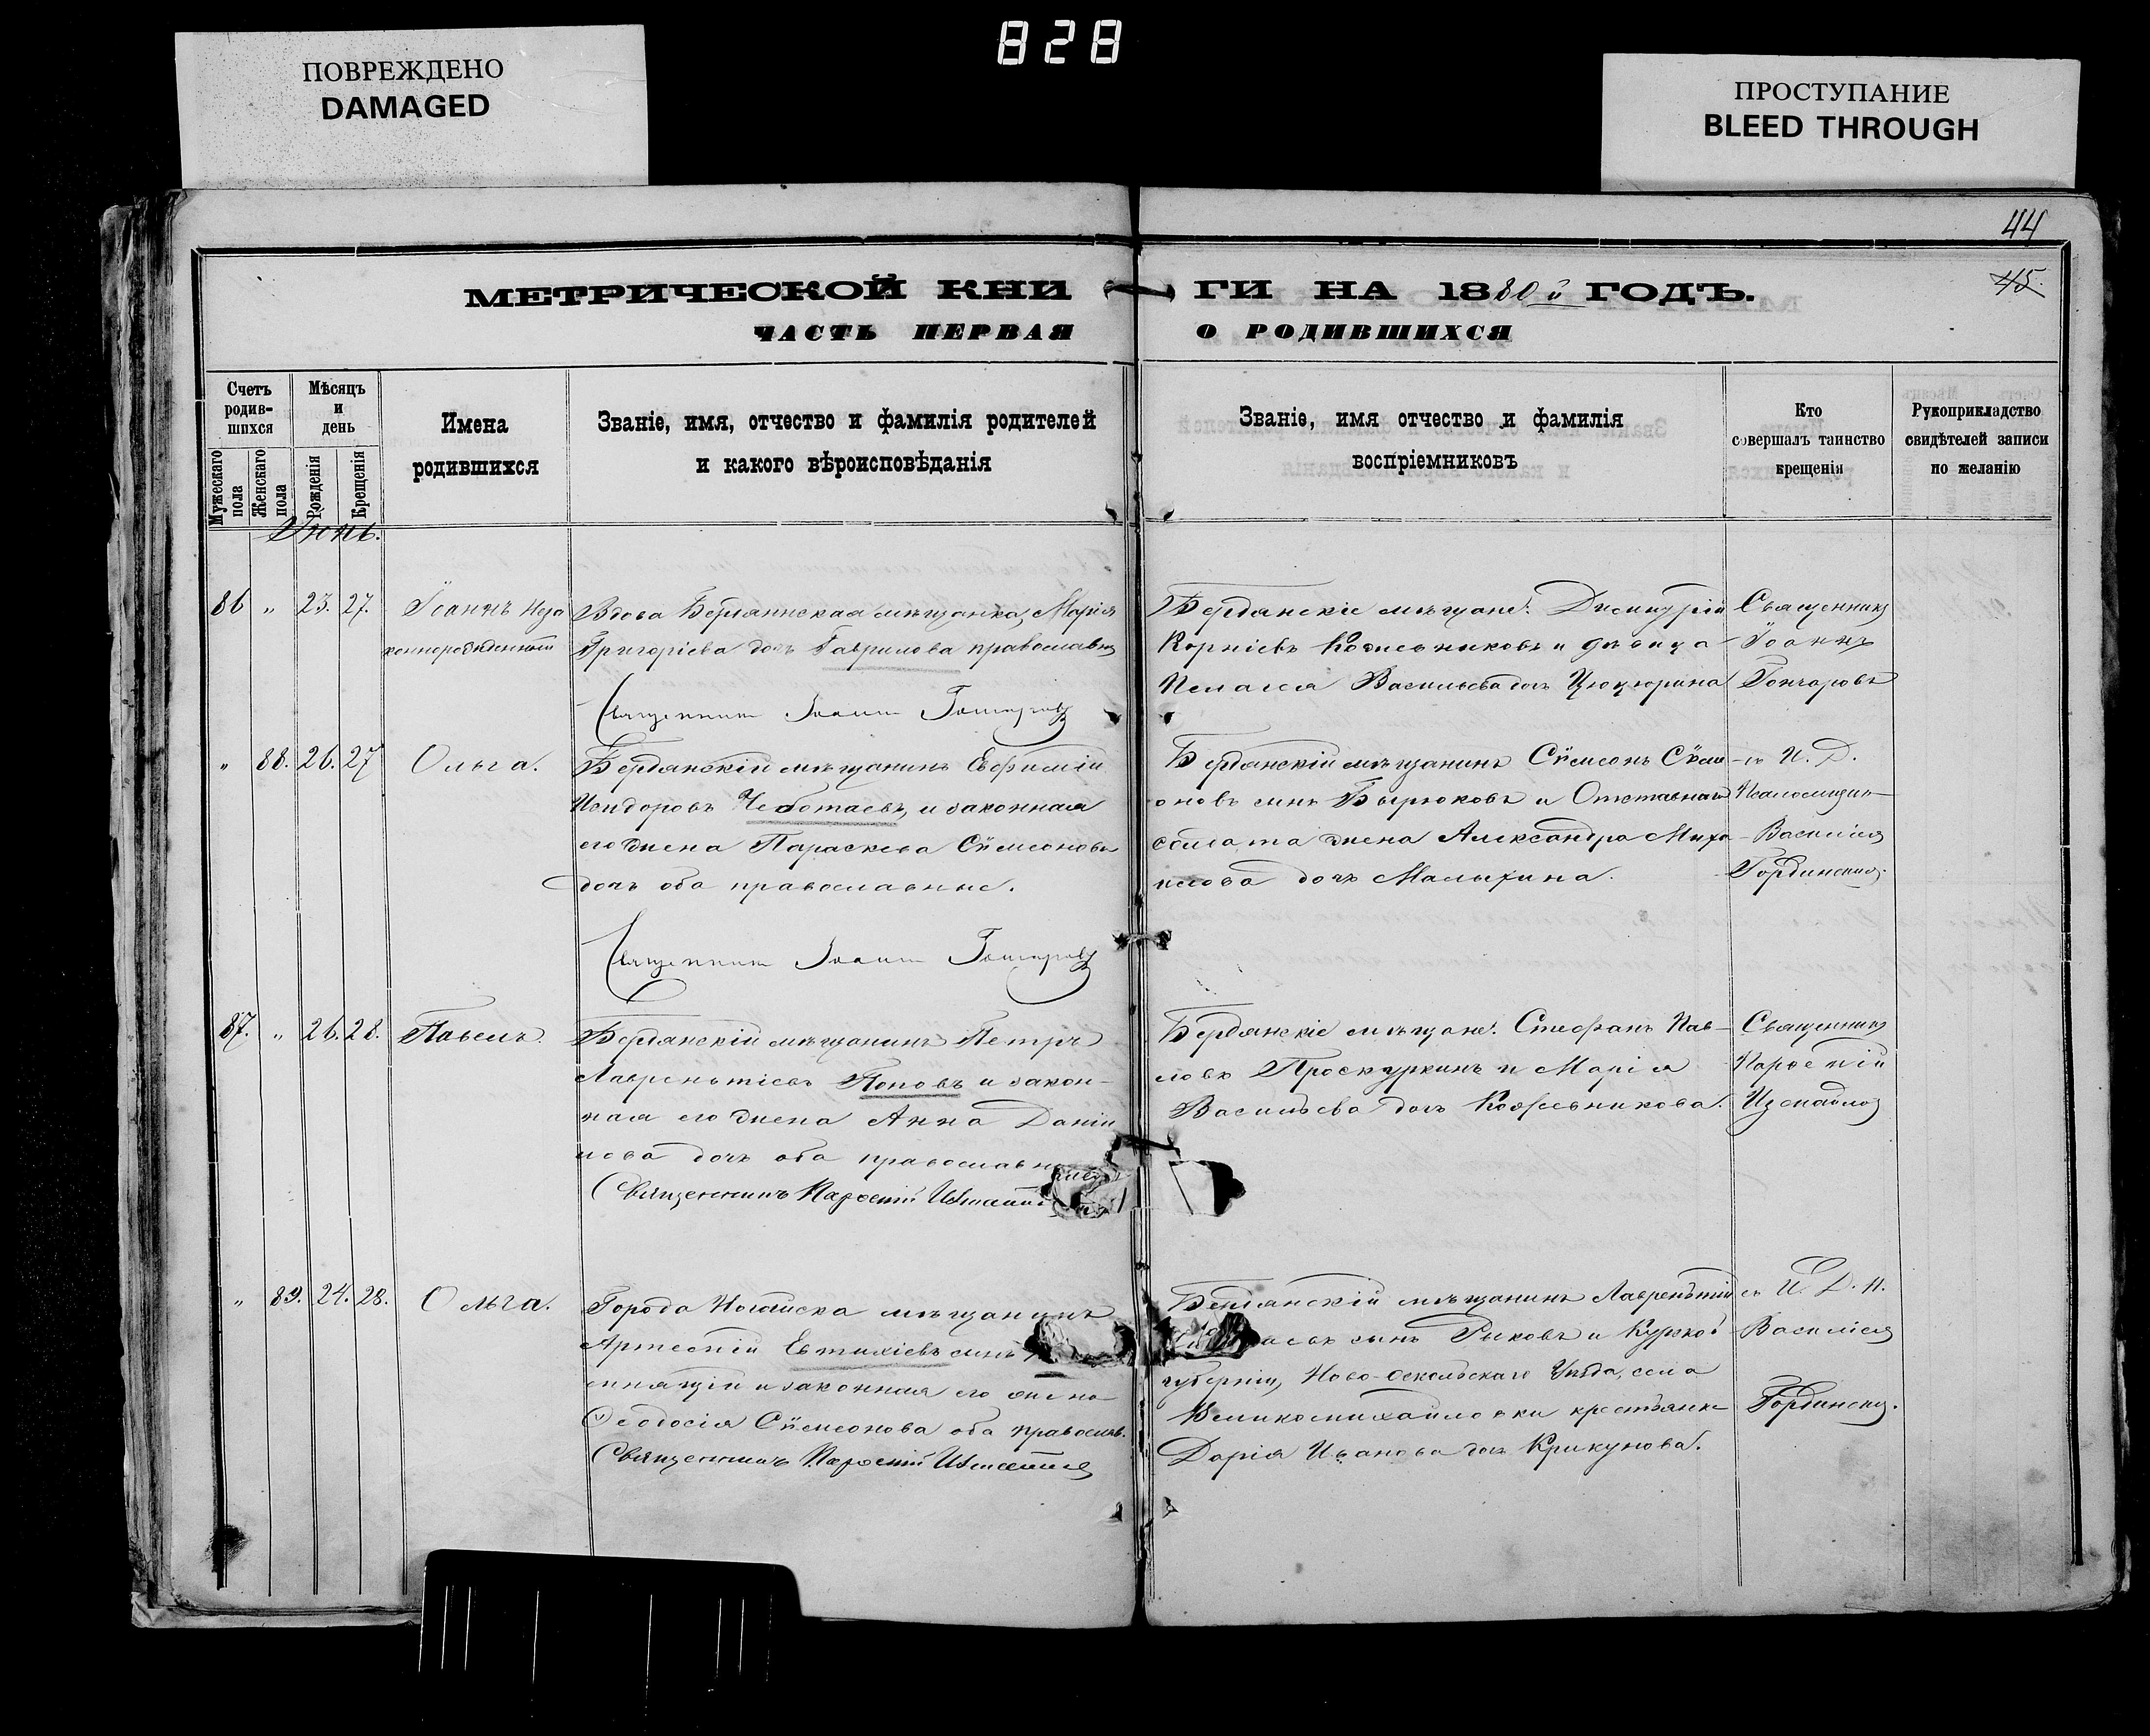 828
ПОВРЕЖДЕНО
DAMAGED
ПРОСТУПАНИЕ
BLEED THROUGH
44
45.
МЕТРИЧЕСКОЙ КНИ ГИ НА 1880й ГОДЪ.
ЧАСТЬ ПЕРВАЯ О РОДИВШИХСЯ
Счетъ родив-шихся
Мужескаго пола
Женскаго пола
Мѣсяцъ и день
Рожденія
Крещенія
Имена родившихся
Званіе, имя, отчество и фамилія родителей
и какого вѣроисповѣданія
Званіе, имя отчество и фамилія
воспріемниковъ
Кто
совершалъ таинство
крещенія
Рукоприкладство
свидѣтелей записи
по желанію
Іюнь.
86 " 23. 27. Іоаннъ неза
коннорожденный
Вдова Бердянская мѣщанка, Марія
Григорієва дочь Гаврилова православн
Священникъ Іоаннъ Гончаровъ
Бердянскіе мѣщане: Димитрій
Корніевъ Кожевниковъ и дѣвица
Пелагея Васильева дочь Цюцюрина
Священникъ
Іоаннъ
Гончаровъ
" 88. 26. 27 Ольга.
Бердянскій мѣщанинъ Евфимій
Исидоровъ Чеботаевъ, и законная
его жена Параскева Сѵмеонова
дочь оба православные.
Священникъ Іоаннъ Гончаровъ
Бердянскій мѣщанинъ Сѵмеонъ Сѵме
оновъ сынъ Бырюковъ и Отставнаго
солдата жена Александра Миха
илова дочь Малыхина.
съ И. Д.
Псаломщик
Василіем
Гординским.
87. " 26. 28. Павелъ.
Бердянскій мѣщанинъ Петръ
Лаврентіевъ Поповъ и закон-
ная его жена Анна Даніи
лова дочь оба православн
Священникъ
Бердянскіе мѣщане: Стефанъ Пав-
ловъ Проскуркинъ и Марія
Васильева дочь Кожевникова.
Священник
" 89. 24. 28. Ольга.
Города Ногайска мѣщанинъ
Артемій Евтихіевъ сынъ
и законная его жена
Ѳеодосія Сѵмеонова оба православ.
Священникъ
Бердянскій мѣщанинъ Лаврентій
сынъ Рыковъ и Курской
губерніи, Ново-Оскольскаго Уѣзда, села
Великомихайловки крестьянка
Дарія Иванова дочь Крикунова.
съ И. Д. П.
Василіем
Гординским.